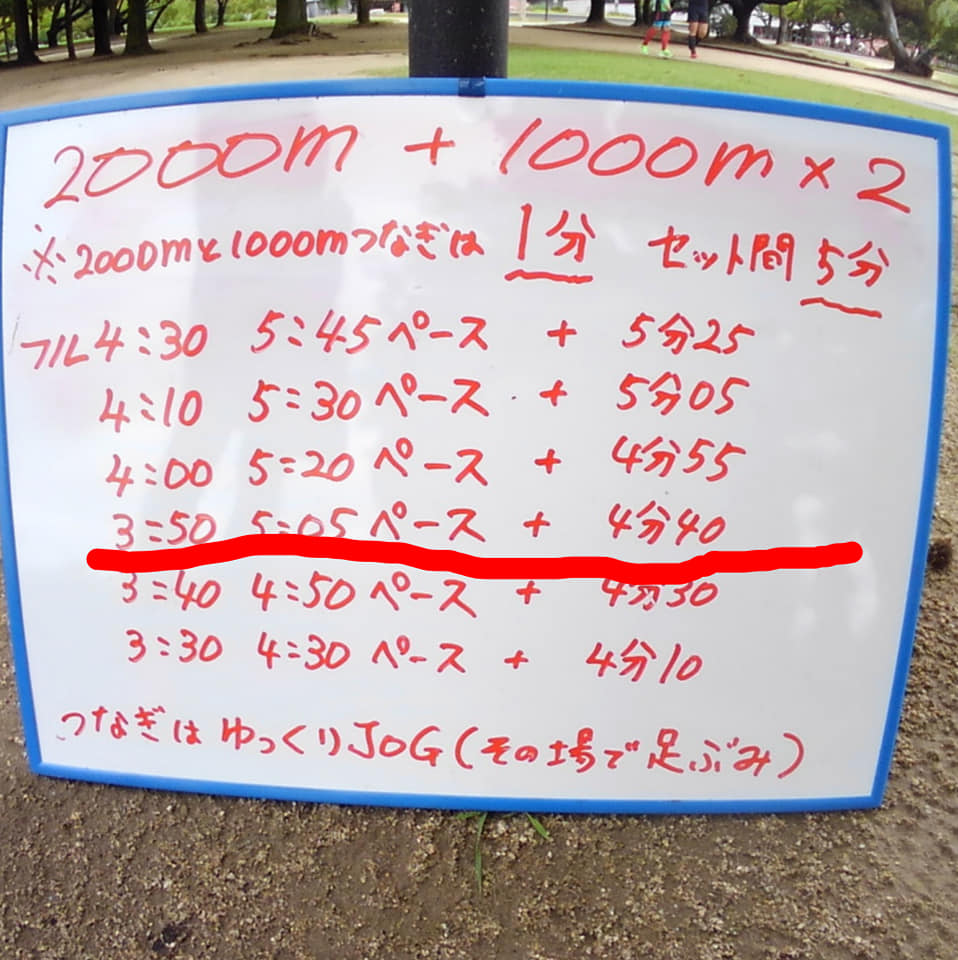 2000m + 1000m × 2
※2000mと1000mつなぎは 1分 セット間 5分
フル4:30 5:45ペース + 5分25
4:10 5:30ペース + 5分05
4:00 5:20ペース + 4分55
3:50 5:05ペース + 4分40
3:40 4:50ペース + 4分30
3:30 4:30ペース + 4分10
つなぎは ゆっくりJOG(その場で足ぶみ)